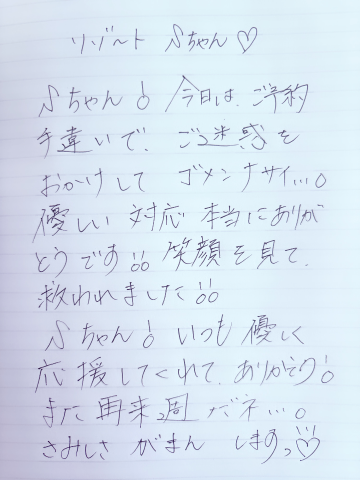 リゾート Sちゃん♡
Sちゃん! 今日は、ご予約
手違いで、ご迷惑を
おかけして ゴメンナサイ…。
優しい 対応 本当にありが
とうです!! 笑顔を見て、
救われました!!
Sちゃん! いつも 優しく
応援してくれて、ありがとう!
また 再来週 だネ…。
さみしさ がまん しますっ♡